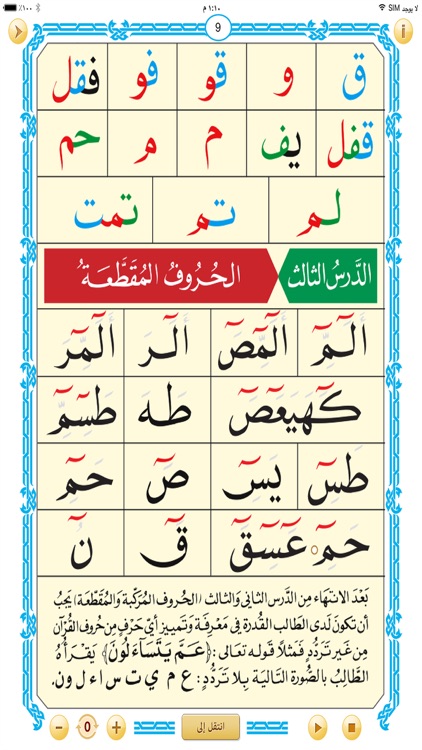 لا يوجد SIM ١:١٠ م ١٠٠٪
9
ق و قو فو فقل
قفل يف م م حم
لم تم تمت
الدَّرسُ الثالث الحُرُوفُ المُقَطَّعَةُ
الٓمٓ الٓمٓصٓ الٓر الٓمٓر
كٓهيعٓصٓ طه طسٓمٓ
طسٓ يسٓ صٓ حمٓ
حمٓ ۝ عٓسٓقٓ قٓ نٓ
بَعْدَ الانتهَاء مِن الدَّرس الثانى وَالثالث (الحُروف المُرَكَّبة وَالمُقَطَّعَة) يَجبُ
أن تكونَ لَدى الطالب القُدرة فِى مَعرفَة وَتمييز أيّ حَرْفٍ مِن حُروف القُرآن
مِن غَير تَردُّدٍ فَمثلاً قوله تعالى :﴿عَمَّ يَتَسَآءَلُونَ﴾ يَقْرَأُهُ
الطَّالِبُ بالصُّورة التَّاليَة بِلا تَردُّدٍ: ع م ي ت س ا ء ل و ن.
0 انتقل إلى